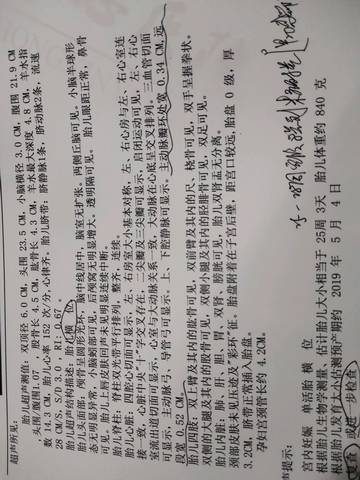 超声所见:
胎儿超声测值: 双顶径 6.0 CM, 头围 23.5 CM, 小脑横径 3.0 CM, 腹围 21.9 CM
, 头围/腹围1.07 , 股骨长 4.5 CM, 肱骨长 4.3 CM, 羊水最大深度 4.8 CM, 羊水指
数 14.3 CM, 胎儿心率 152 次/分,心律齐。胎儿脐带: 脐静脉1条, 脐动脉2条, 流速
28 CM/S, S/D: 2.97 RI: 0.67
胎儿超声结构描述: 胎儿横位
胎儿头面部: 颅骨呈圆形光环, 脑中线居中, 脑室无扩张、两侧丘脑可见。小脑半球形
态无明显异常, 小脑蚓部可见, 后颅窝无明显增大。透明隔可见。胎儿眼距正常, 鼻骨
可见。胎儿上唇皮肤回声未见明显连续中断。
胎儿脊柱: 脊柱双光带平行排列, 整齐, 连续。
胎儿心脏: 四腔心切面可显示, 左、右房室大小基本对称, 左、右心房与左、右心室连
接一致, 心脏中央"十"字交叉存在, 二尖瓣及三尖瓣可显示, 启闭运动可见, 左、右心
室流出道切面可显示, 心室与大动脉关系一致, 大动脉在心底呈交叉排列。三血管切面
可显示。主动脉弓、导管弓可显示。上、下腔静脉可显示。主动脉瓣环处宽 0.34 CM,远
段宽 0.52 CM。
胎儿四肢: 双上臂及其内的肱骨可见, 双前臂及其内的尺、桡骨可见, 双手呈握拳状。
双侧的大腿及其内的股骨可见, 双侧小腿及其内的胫腓骨可见, 双足可见。
胎儿内脏: 肺、肝、胆、胃、双肾、膀胱可见, 胎儿双肾盂无分离。
颈部皮肤未见压迹及"彩环"征。胎盘附着在子宫后壁, 距宫口较远, 胎盘 0 级, 厚
3.2CM, 脐带正常插入胎盘。
孕妇宫颈管长约 4.2CM。
声提示:
宫内妊娠 单活胎 横 位
根据胎儿生物学测量, 估计胎儿大小相当于 25周 3天 胎儿体重约 840 克
根据胎儿发育大小估测预产期约 2019 年 5 月 4 日